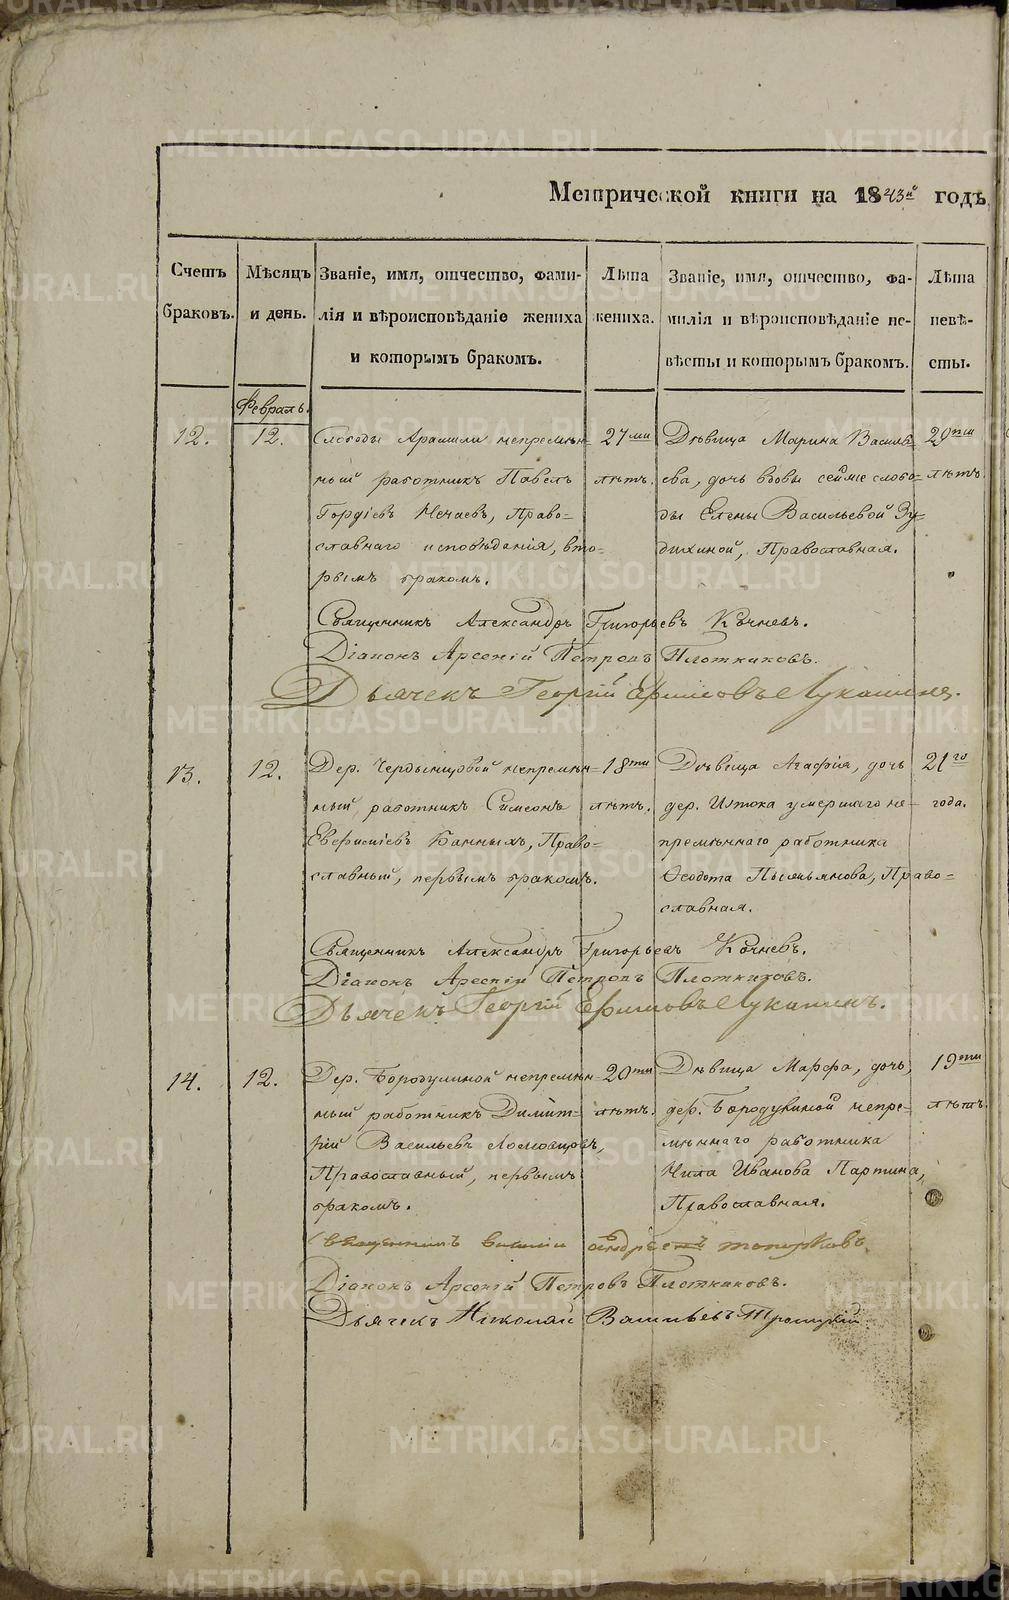 Метрической книги на 1843й годъ
Счетъ браковъ.
Мѣсяцъ и день.
Званіе, имя, отчество, фами-
лія и вѣроисповѣданіе жениха
и которымъ бракомъ.
Лѣта жениха.
Званіе, имя, отчество, фа-
милія и вѣроисповѣданіе не-
вѣсты и которымъ бракомъ.
Лѣта невѣ-
сты.
Февраль.
12.
12.
Слободы Арамили непремѣн-
ный работникъ Павелъ
Гордіевъ Нечаевъ, Право-
славнаго исповѣданія, вто-
рымъ бракомъ.
27ми
лѣтъ.
Дѣвица Марина Василь-
ева, дочь вдовы сей же слобо-
ды Елены Васильевой
Православная.
20ти
лѣтъ.
Священникъ Александръ Григорьевъ Кочневъ.
Діаконъ Арсеній Петровъ Плотниковъ.
Дьячекъ Георгій Ефимовъ Лукашинъ.
13.
12.
Дер. Чердынцовой непремѣн-
ный работникъ Симеонъ
Банныхъ, Право-
славный, первымъ бракомъ.
18ти
лѣтъ.
Дѣвица Агафія, дочь
дер. Истока умершаго не-
премѣннаго работника
Ѳеодота Право-
славная.
21го
года.
Священникъ Александръ Григорьевъ Кочневъ.
Діаконъ Арсеній Петровъ Плотниковъ.
Дьячекъ Георгій Ефимовъ Лукашинъ.
14.
12.
Дер. Бородулиной непремѣн-
ный работникъ Димит-
рій Васильевъ
Православный, первымъ
бракомъ.
20ти
лѣтъ.
Дѣвица Марфа, дочь
дер. Бородулиной непре-
мѣннаго работника
Нила Иванова Партина,
Православная.
19ти
лѣтъ.
Священникъ Андреевъ Топорковъ.
Діаконъ Арсеній Петровъ Плотниковъ.
Дьячекъ Николай Васильевъ Троицкій.
METRIKI.GASO-URAL.RU